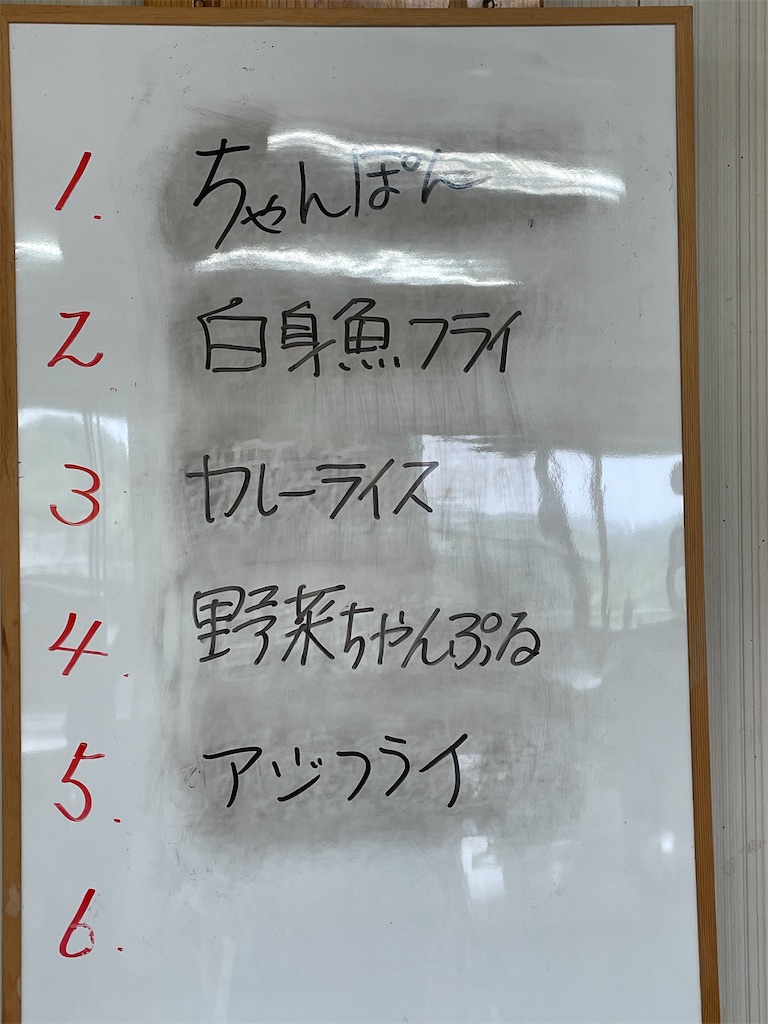 1. ちゃんぽん
2. 白身魚フライ
3 カレーライス
4. 野菜ちゃんぷる
5. アジフライ
6.